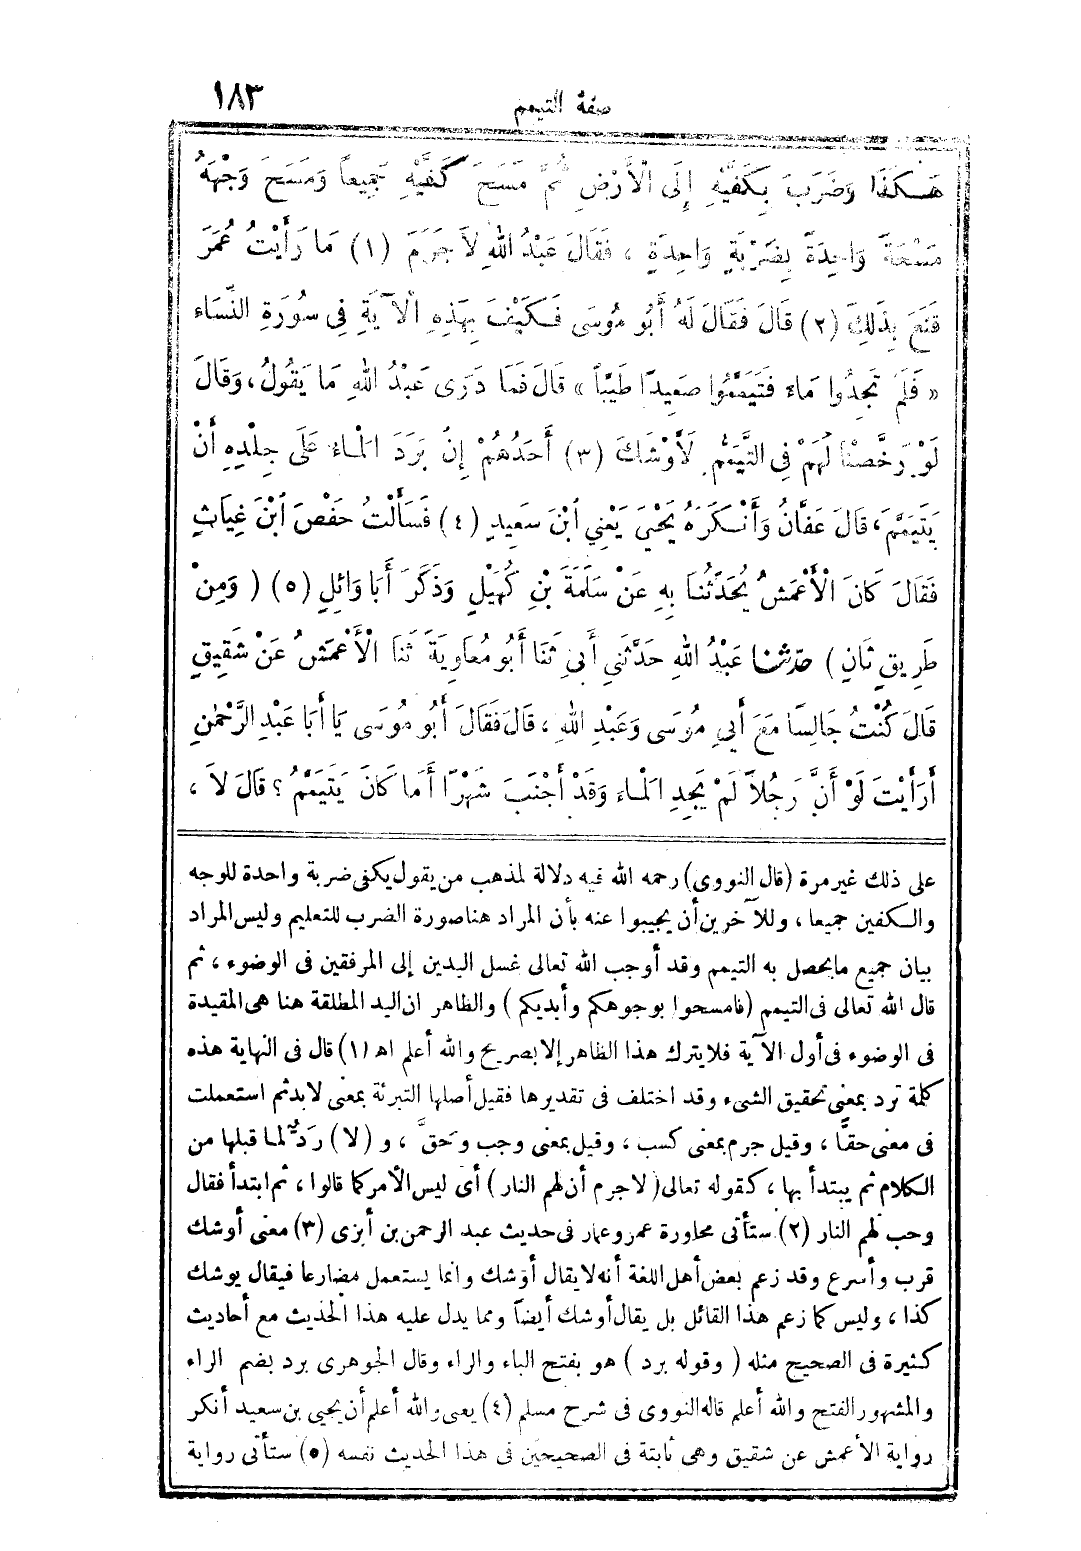 صفة التيمم ١٨٣
هَكَذَا وَضَرَبَ بِكَفَّيْهِ إِلَى الْأَرْضِ ثُمَّ مَسَحَ كَفَّيْهِ جَمِيعاً وَمَسَحَ وَجْهَهُ
مَسْحَةً وَاحِدَةً بِضَرْبَةٍ وَاحِدَةٍ ، فَقَالَ عَبْدُ اللهِ لاَ جَرَمَ (١) مَا رَأَيْتُ عُمَرَ
قَنَعَ بِذَلِكَ (٢) قَالَ فَقَالَ لَهُ أَبُو مُوسَى فَكَيْفَ بِهَذِهِ الْآيَةِ فِى سُورَةِ النِّسَاء
« فَلَمْ تَجِدُوا مَاءً فَتَيَمَّمُوا صَعِيدًا طَيِّباً » قَالَ فَمَا دَرَى عَبْدُ اللهِ مَا يَقُولُ ، وَقَالَ
لَوْ رَخَّصْنَا لَهُمْ فِى التَّيَمُّمِ لَأَوْشَكَ (٣) أَحَدُهُمْ إِنْ بَرَدَ الْمَاءُ عَلَى جِلْدِهِ أَنْ
يَتَيَمَّمَ ، قَالَ عَفَّانُ وَأَنْكَرَهُ يَحْيَى يَعْنِي ابْنَ سَعِيدٍ (٤) فَسَأَلْتُ حَفْصَ ابْنَ غِيَاثٍ
فَقَالَ كَانَ الْأَعْمَشُ يُحَدِّثُنَا بِهِ عَنْ سَلَمَةَ بْنِ كُهَيْلٍ وَذَكَرَ أَبَا وَائِلٍ (٥) ( وَمِنْ
طَرِيقٍ ثَانٍ ) حدثنا عَبْدُ اللهِ حَدَّثَنِي أَبِي ثَنَا أَبُو مُعَاوِيَةَ ثَنَا الْأَعْمَشُ عَنْ شَقِيقٍ
قَالَ كُنْتُ جَالِسًا مَعَ أَبِي مُوسَى وَعَبْدِ اللهِ ، قَالَ فَقَالَ أَبُو مُوسَى يَا أَبَا عَبْدِ الرَّحْمٰنِ
أَرَأَيْتَ لَوْ أَنَّ رَجُلاً لَمْ يَجِدِ الْمَاءَ وَقَدْ أَجْنَبَ شَهْرًا أَمَا كَانَ يَتَيَمَّمُ ؟ قَالَ لاَ ،
على ذلك غير مرة (قال النووى) رحمه الله فيه دلالة لمذهب من يقول يكفى ضربة واحدة للوجه
والكفين جميعا ، وللآخرين أن يجيبوا عنه بأن المراد هنا صورة الضرب للتعليم وليس المراد
بيان جميع ما يحصل به التيمم وقد أوجب الله تعالى غسل اليدين إلى المرفقين فى الوضوء ، ثم
قال الله تعالى فى التيمم (فامسحوا بوجوهكم وأيديكم ) والظاهر ان اليد المطلقة هنا هى المقيدة
فى الوضوء فى أول الآية فلا يترك هذا الظاهر إلا بصريح والله أعلم اهـ (١) قال فى النهاية هذه
كلمة ترد بمعنى تحقيق الشىء وقد اختلف فى تقديرها فقيل أصلها التبرئة بمعنى لا بد ثم استعملت
فى معنى حقًّا ، وقيل جرم بمعنى كسب ، وقيل بمعنى وجب وحَقَّ ، و ( لا ) ردٌّ لما قبلها من
الكلام ثم يبتدأ بها ، كقوله تعالى ( لا جرم أن لهم النار ) أى ليس الأمر كما قالوا ، ثم ابتدأ فقال
وجب لهم النار (٢) ستأتى محاورة عمر وعمار فى حديث عبد الرحمن بن أبزى (٣) معنى أوشك
قرب وأسرع وقد زعم بعض أهل اللغة أنه لا يقال أوشك وانما يستعمل مضارعا فيقال يوشك
كذا ، وليس كما زعم هذا القائل بل يقال أوشك أيضاً ومما يدل عليه هذا الحديث مع أحاديث
كثيرة فى الصحيح مثله ( وقوله برد ) هو بفتح الباء والراء وقال الجوهرى برد بضم الراء
والمشهور الفتح والله أعلم قاله النووى فى شرح مسلم (٤) يعنى والله أعلم أن يحيى بن سعيد أنكر
رواية الأعمش عن شقيق وهى ثابتة فى الصحيحين فى هذا الحديث نفسه (٥) ستأتى رواية